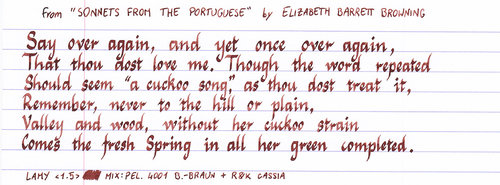 from "SONNETS FROM THE PORTUGUESE" by ELIZABETH BARRETT BROWNING
Say over again, and yet once over again,
That thou dost love me. Though the word repeated
Should seem "a cuckoo song," as thou dost treat it,
Remember, never to the hill or plain,
Valley and wood, without her cuckoo strain
Comes the fresh Spring in all her green completed.
LAMY <1.5> MIX: PEL. 4001 B.-BRAUN + R&K CASSIA